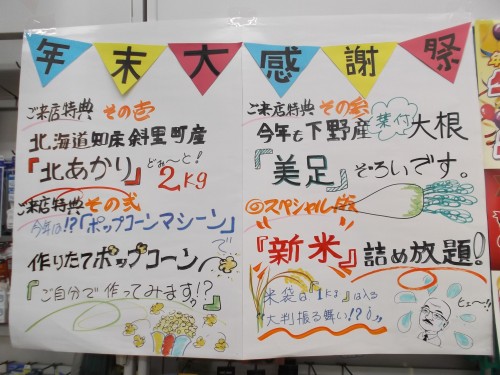 年末大感謝祭
ご来店特典 その壱
北海道知床斜里町産
『北あかり』どぉ〜と！2kg
ご来店特典 その弐
今年は!?『ポップコーンマシーン』で
作りたてポップコーン
『ご自分で作ってみます!!』?
ご来店特典 その参
今年も下野産 葉付 大根
『美足』そろいです。
◎スペシャル版
『新米』詰め放題！
米袋は『1kg』は入る
"大判振る舞い!?"
ヒュー〜!!